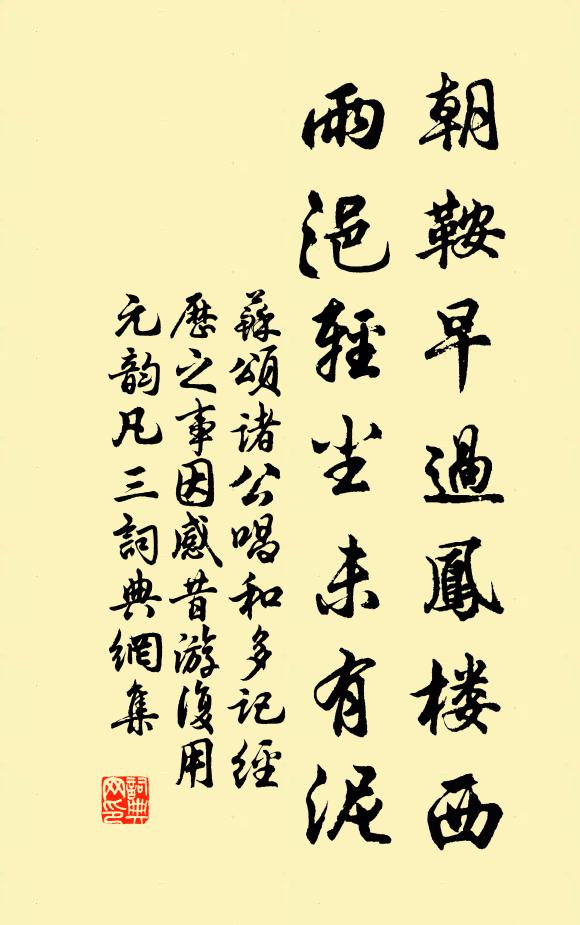 朝鞍早過鳳楼西
雨浥輕尘未有泥
蘇頌諸公唱和多記經
歷之事因感昔游復用
元韵凡三詞典網集
詞典网印